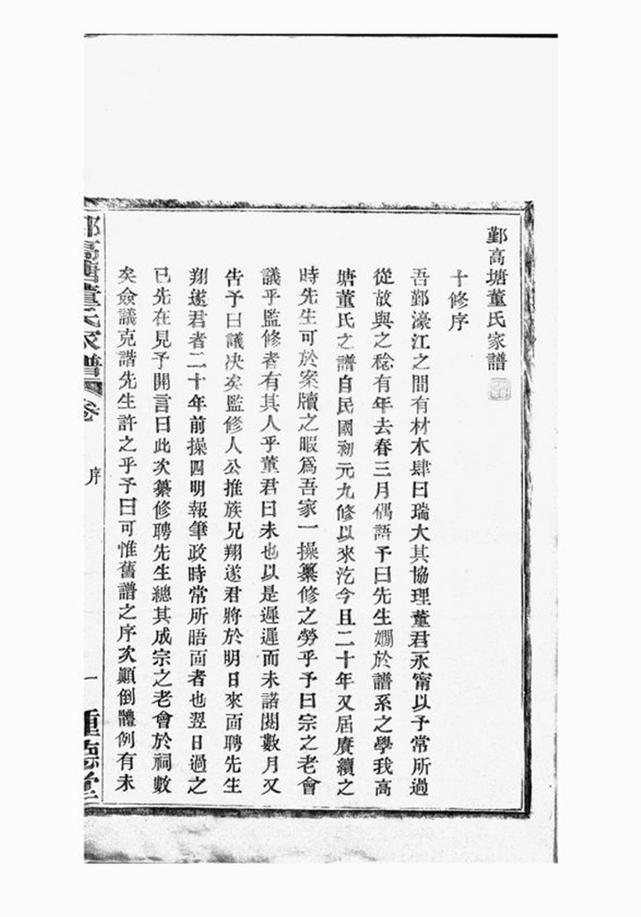 鄞高塘董氏家譜
十修序
吾鄞濠江之間有材木肆曰瑞大其協理董君永甯以予常所過
從故與之稔有年去春三月偶語予曰先生嫺於譜系之學我高
塘董氏之譜自民國初元九修以來汔今且二十年又屆賡續之
時先生可於案牘之暇爲吾家一操纂修之勞乎予曰宗之老會
議乎監修者有其人乎董君曰未也以是遲遲而未諾閱數月又
告予曰議决矣監修人公推族兄翔遂君將於明日來面聘先生
翔遂君者二十年前操四明報筆政時常所晤面者也翌日過之
已先在見予開言曰此次纂修聘先生總其成宗之老會於祠數
矣僉議克諧先生許之乎予曰可惟舊譜之序次顚倒體例有未
鄞高塘董氏家譜 卷 序 一 種德堂